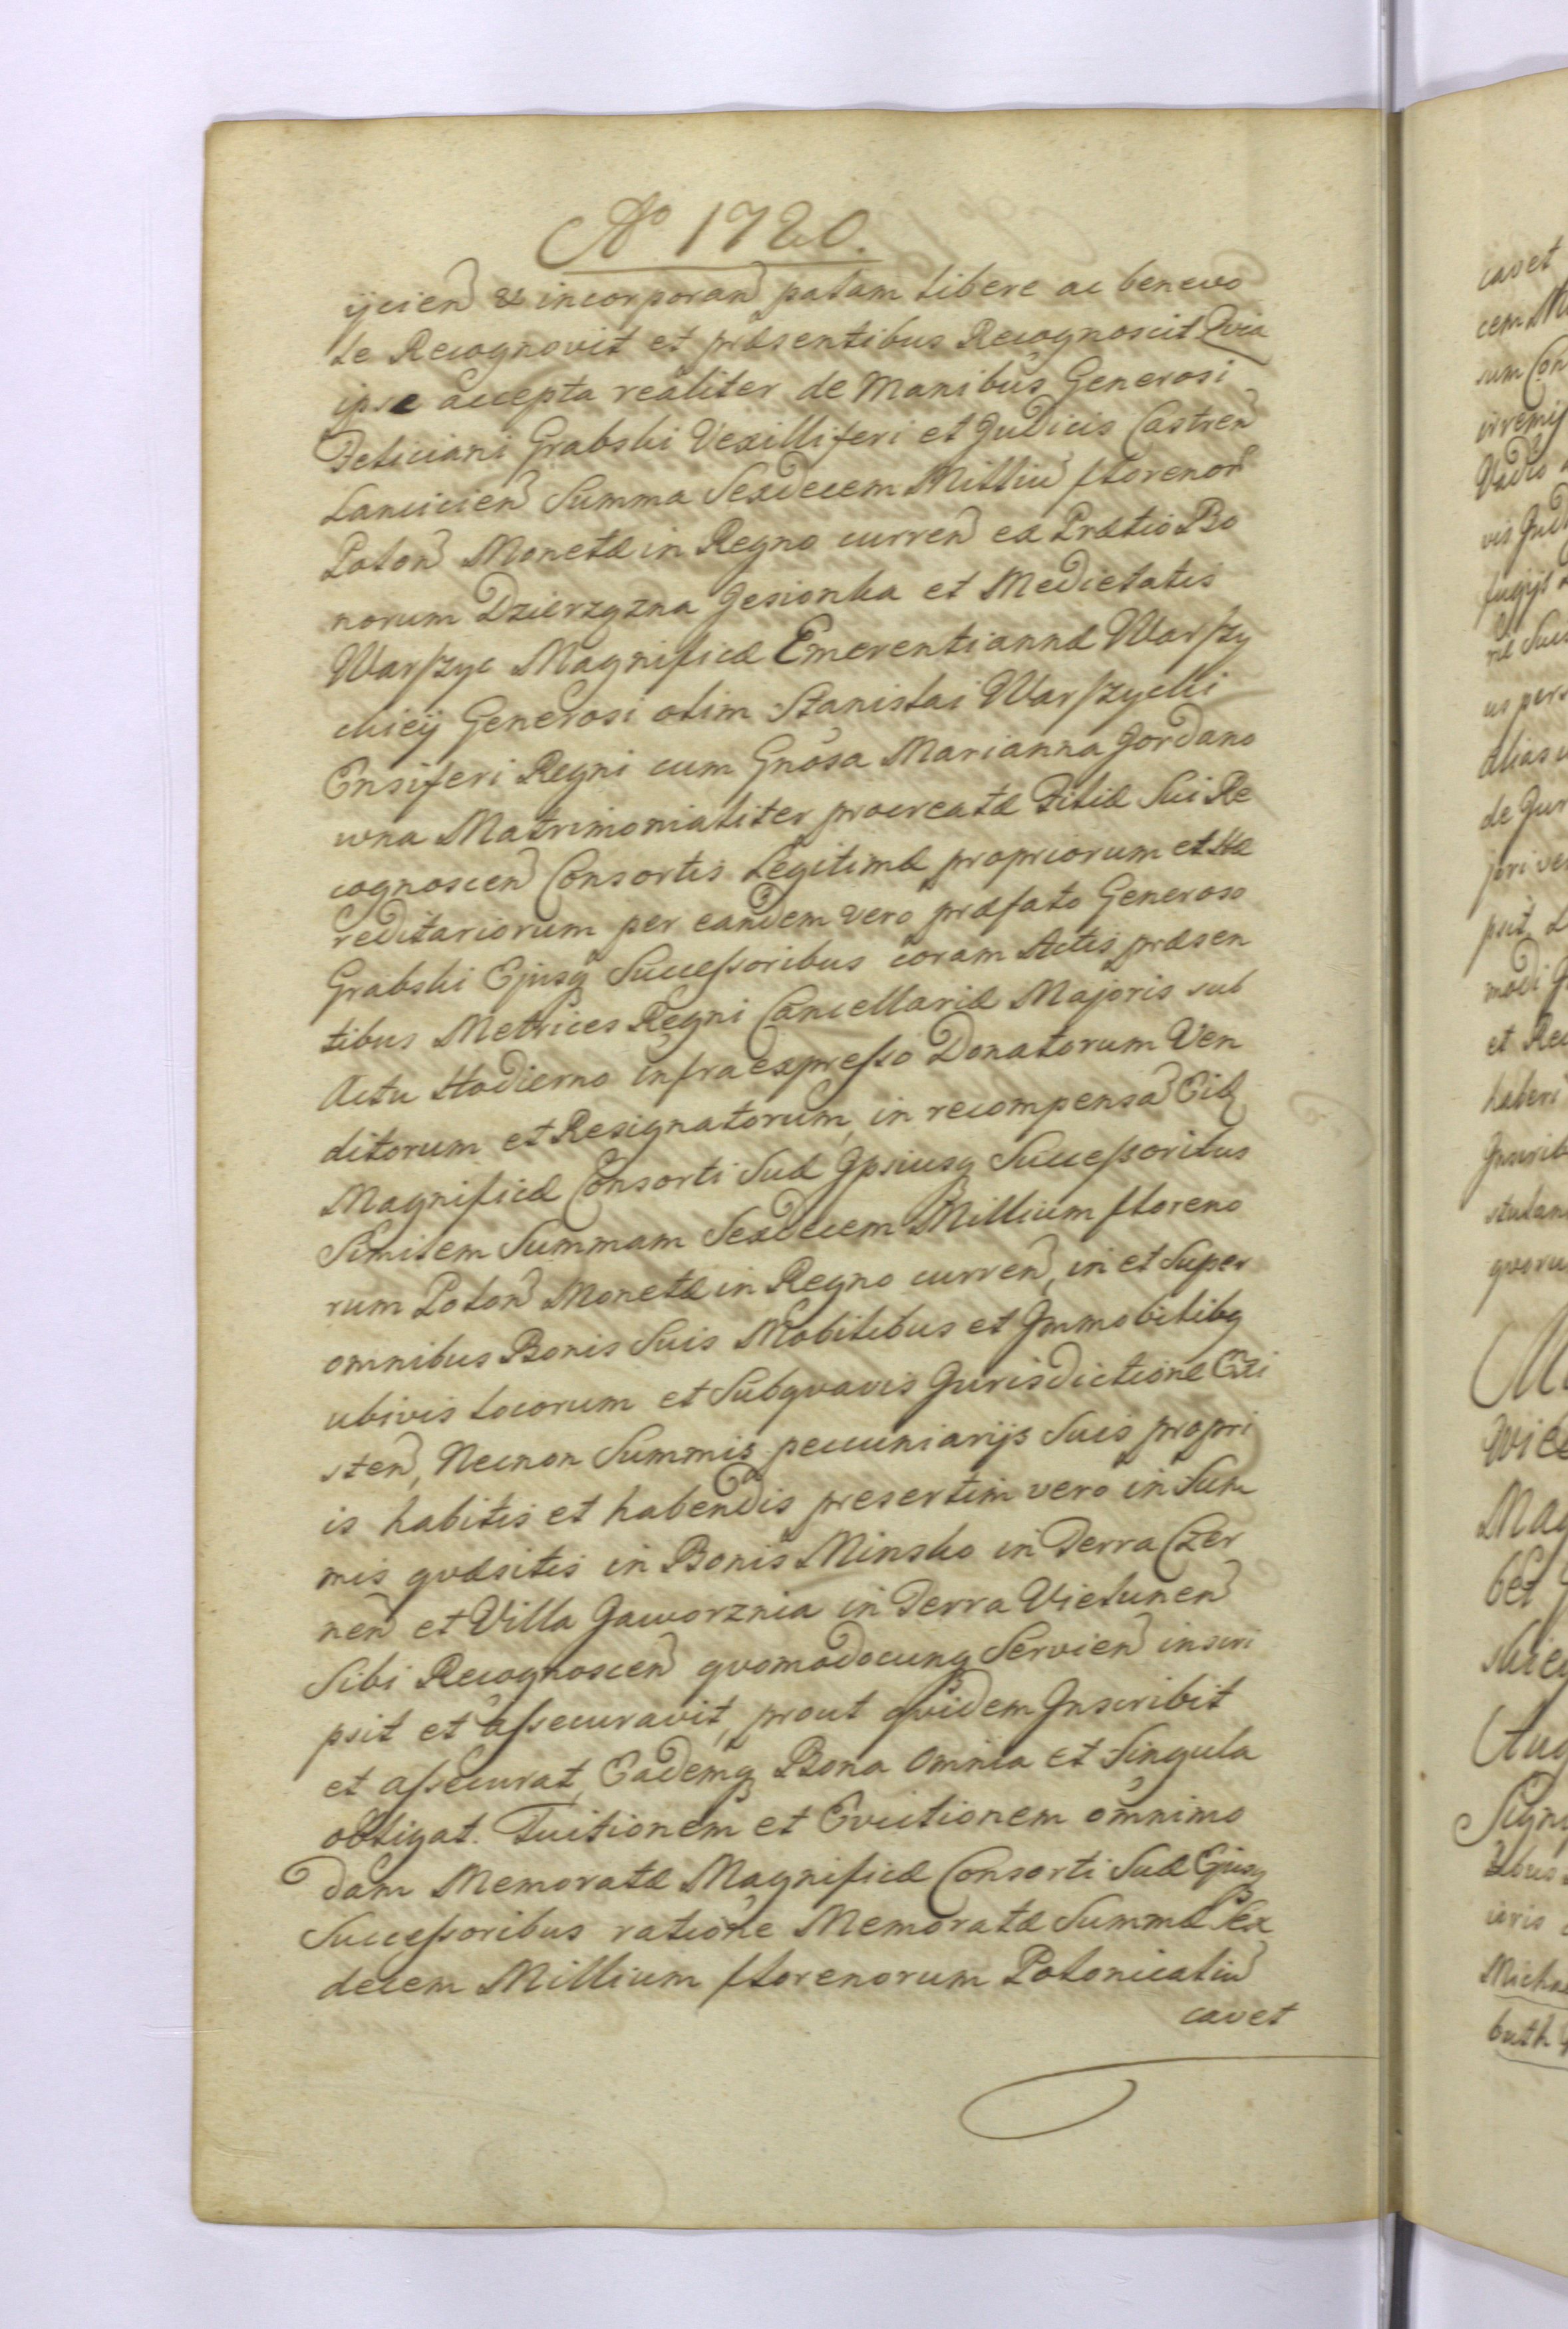 Ao 1720.
ijcien̄ & incorporan̄ palam libere ac benevo
le Recognovit et præsentibus Recognoscit Qvia
ipse accepta realiter de Manibus Generosi
Feliciani Grabski Vexilliferi et Judicis Castren̄
Lancicien̄ Summa Sexdecem Milliū florenor̄
Polon̄ Monetæ in Regno curren̄ ex Prætio Bo
norum Dzierzązna Jesionka et Medietatis
Warſzyc Magnificæ Emerentiannæ Warſzy
ckieÿ Generosi olim Stanislai Warſzycki
Ensiferi Regni cum Gnōsa Marianna Jordano
wna Matrimonialiter procreatæ Filiæ Sui Re
cognoscen̄ Consortis Legitimæ propriorum et Hæ
reditariorum per eandem vero præfato Generoso
Grabski Ejusq Succeſsoribus coram Actis præsen
tibus Metrices Regni Cancellariæ Majoris sub
Actu Hodierno infraexpreſso Donatorum Ven
ditorum et Resignatorum, in recompensā Eid
Magnificæ Consorti Suæ Ipsiusq Succeſsoribus
Similem Summam Sexdecem Millium floreno
rum Polon̄ Monetæ in Regno curren̄, in et Super
omnibus Bonis Suis Mobilibus et Immobilibq
ubivis locorum et Subqvavis Jurisdictione Exi
sten̄, Necnon Summis pecuniarijs Suis propri
is habitis et habendis presertim vero in Sum
mis qvæsitis in Bonis Minsko in Terra Czer
nen̄ et Villa Jaworznia in Terra Vielunen̄
Sibi Recognoscen̄ qvomodocunq Servien̄ inscri
psit et aſsecuravit, prout qvidem Inscribit
et aſsecurat, Eademq Bona omnia et Singula
obligat. Tuitionem et Evictionem omnimo
dam Memoratæ Magnificæ Consorti Suæ Ejusq
Succeſsoribus ratione Memoratæ Summæ Sex
decem Millium florenorum Polonicaliū
cavet